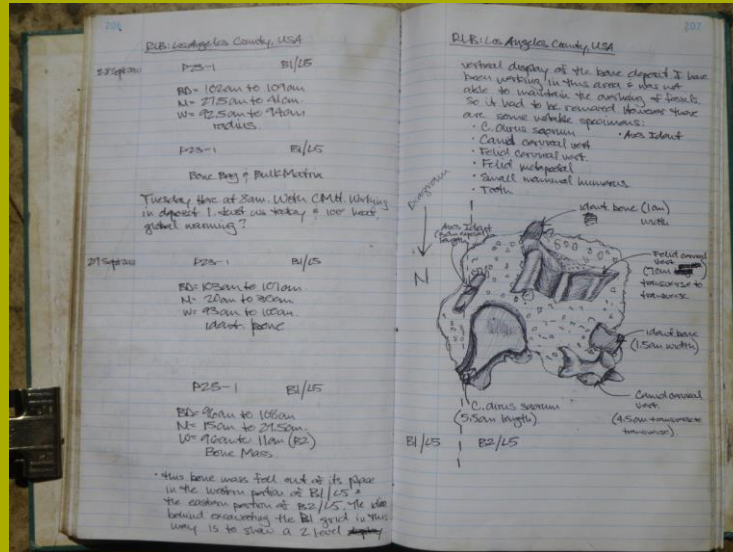 206
RLB: Los Angeles County, USA
28 Sept 2010
P23-1 B1/L5
BD= 102cm to 109cm
N= 27.5cm to 41cm
W= 92.5cm to 94cm
radius.
P23-1 B1/L5
Bone Bag & Bulk Matrix
Tuesday Here at 8am. With CMH. Working
in deposit 1. Just us today & 100° heat,
global warming?
29 Sept 2010
P23-1 B1/L5
BD= 103cm to 107cm
N= 20cm to 30cm
W= 93cm to 100cm
ident. bone
P23-1 B1/L5
BD= 96cm to 108cm
N= 15cm to 27.50cm
W= 96cm to 11cm (B2)
Bone Mass.
• this bone mass fell out of its place
in the western portion of B1/L5 &
the eastern portion of B2/L5. The idea
behind excavating the B1 grid in this
way is to show a 2 level
207
RLB: Los Angeles County, USA
vertical display of the bone deposit I have
been working in this area & was not
able to maintain the overhang of fossils.
So it had to be removed. However there
are some notable specimens:
• C. dirus sacrum • Aves Ident
• Canid cervical vert
• Felid cervical vert.
• Felid metapodial
• Small mammal humerus
• Tooth
Diagram
N
ident bone (1cm)
width
Aves Ident
length)
Felid cervical
vert
transverse to
transverse
ident bone
(1.5cm width)
Canid cervical
vert.
(4.5cm transverse to
transverse)
C. dirus sacrum
(5.5cm length)
B1/L5 B2/L5